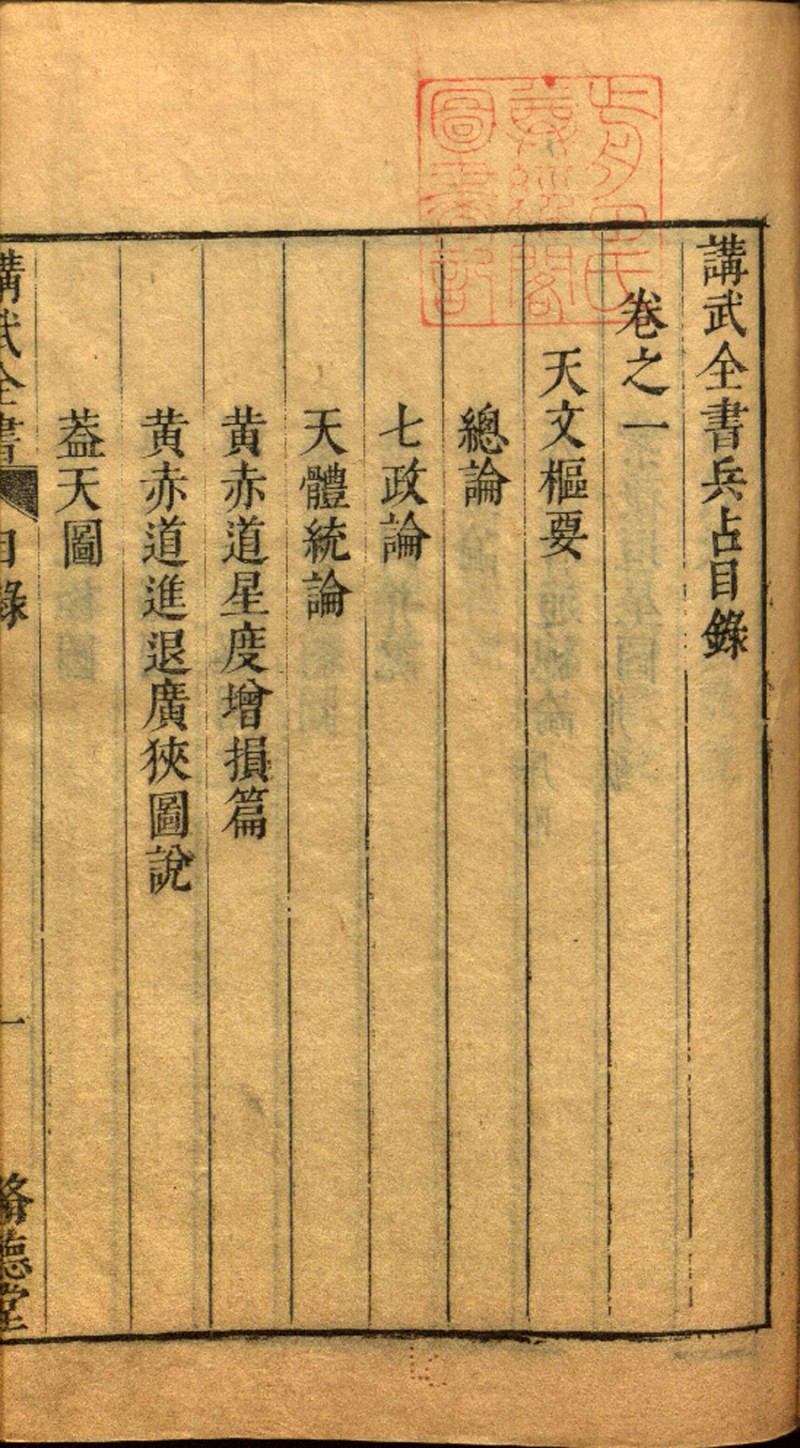 講武全書兵占目錄
卷之一
天文樞要
總論
七政論
天體統論
黄赤道星度增損篇
黄赤道進退廣狹圖說
葢天圖
講武全書 目錄 一
圖書記